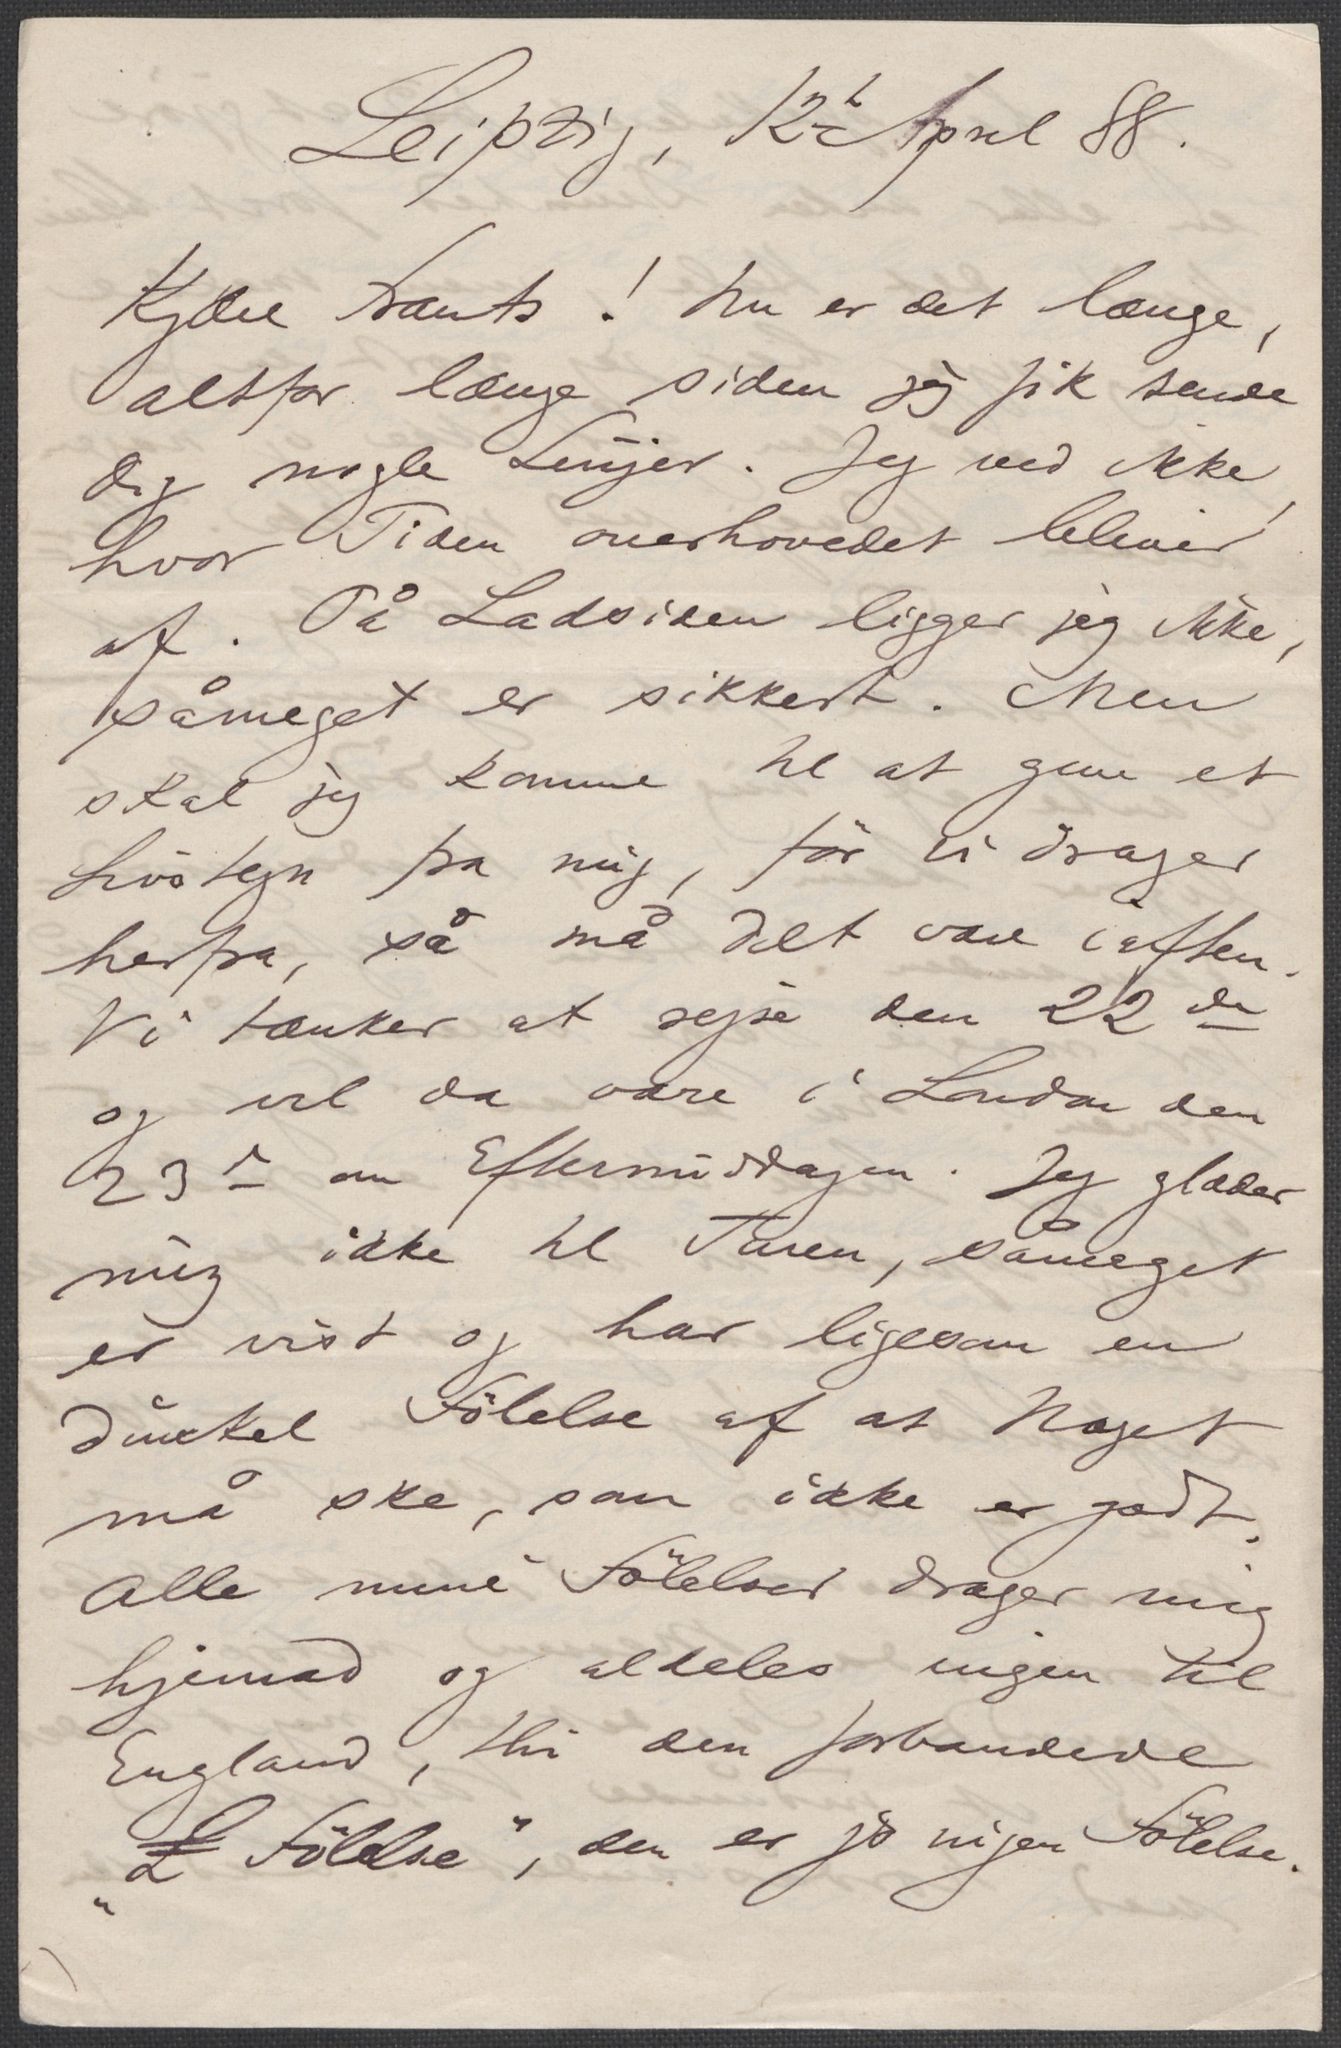 Leipzig, 12te April 88.
Kjære Frants! Nu er det længe,
altfor længe siden jeg fik sende
dig nogle Linjer. Jeg ved ikke,
hvor Tiden overhovedet bliver
af. På Ladsiden ligger jeg ikke,
såmeget er sikkert. Men
skal jeg komme til at give et
Livstegn fra mig, før vi drager
herfra, så må det være iaften.
Vi tænker at rejse den 22de
og vil da være i London den
23de om Eftermiddagen. Jeg glæder
mig ikke til Turen, såmeget
er vist og har ligesom en
dunkel Følelse af at Noget
må ske, som ikke er godt.
Alle mine Følelser drager mig
hjemad og aldeles ingen til
England, thi den forbandede
"£ Følelse", den er jo ingen Følelse.